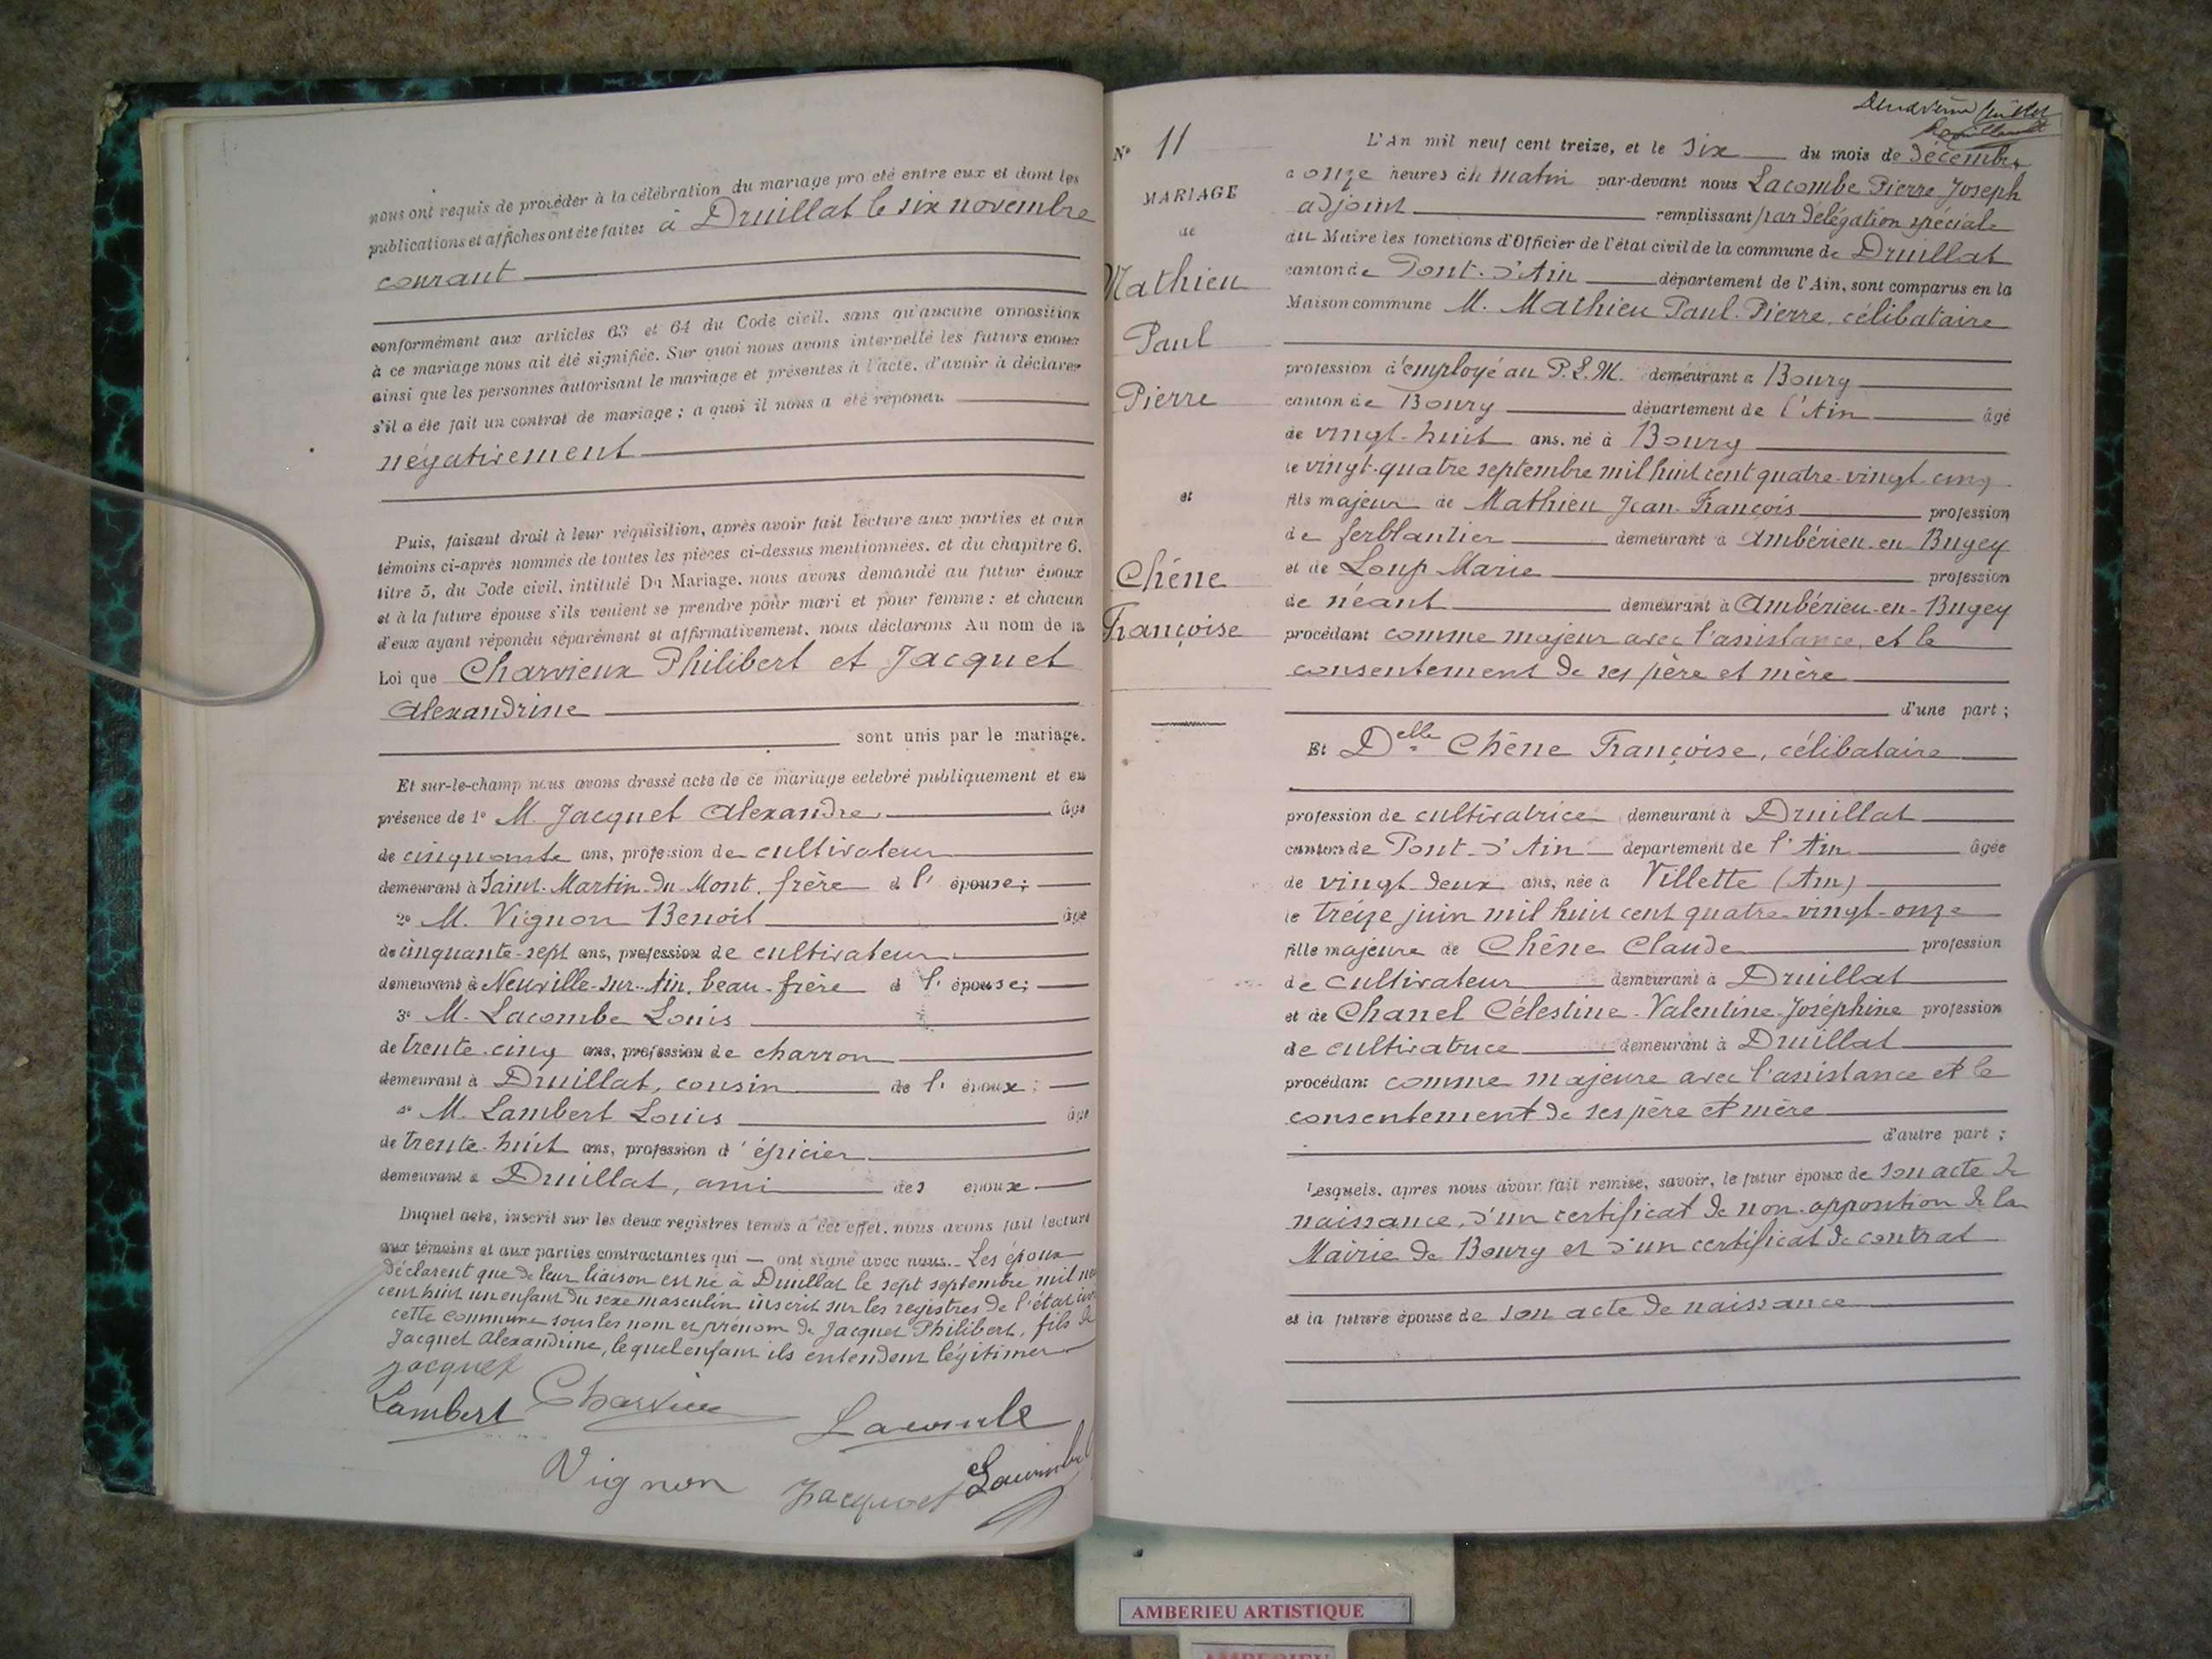 nous ont requis de procéder à la célébration du mariage projeté entre eux et dont les
publications et affiches ont été faites à Druillat le six novembre
courant
conformément aux articles 63 et 64 du Code civil, sans qu'aucune opposition
à ce mariage nous ait été signifiée. Sur quoi nous avons interpellé les futurs époux
ainsi que les personnes autorisant le mariage et présentes à l'acte, d'avoir à déclarer
s'il a été fait un contrat de mariage ; a quoi il nous a été répondu
négativement
Puis, faisant droit à leur réquisition, après avoir fait lecture aux parties et aux
témoins ci-après nommés de toutes les pièces ci-dessus mentionnées, et du chapitre 6,
titre 5, du Code civil, intitulé Du Mariage, nous avons demandé au futur époux
et à la future épouse s'ils veulent se prendre pour mari et pour femme ; et chacun
d'eux ayant répondu séparément et affirmativement, nous déclarons Au nom de la
Loi que Charvieux Philibert et Jacquet
Alexandrine
sont unis par le mariage.
Et sur-le-champ nous avons dressé acte de ce mariage célébré publiquement et en
présence de 1° M. Jacquet Alexandre âgé
de cinquante ans, profession de cultivateur
demeurant à Saint-Martin-du-Mont, frère d l' épouse ;
2° M. Vignon Benoit âgé
de cinquante-sept ans, profession de cultivateur
demeurant à Neuville-sur-Ain, beau-frère d l' épouse ;
3° M. Lacombe Louis
de trente-cinq ans, profession de charron
demeurant à Druillat, cousin de l' époux ;
4° M. Lambert Louis âgé
de trente-huit ans, profession d'épicier
demeurant à Druillat, ami des époux
Duquel acte, inscrit sur les deux registres tenus à cet effet, nous avons fait lecture
aux témoins et aux parties contractantes qui — ont signé avec nous. Les époux
déclarent que de leur liaison est né à Druillat le sept septembre mil neu
cent huit un enfant du sexe masculin inscrit sur les registres de l'état civ
cette commune sous les nom et prénom de Jacquet Philibert, fils de
Jacquet Alexandrine, lequel enfant ils entendent légitimer
Jacquet
Lambert Charvieux Lacombe
Vignon Jacquet Lacombe
Deuxième feuillet
N° 11
MARIAGE
de
Mathieu
Paul
Pierre
et
Chêne
Françoise
L'An mil neuf cent treize, et le six du mois de décembre
à onze heures du matin par-devant nous Lacombe Pierre Joseph
adjoint remplissant par délégation spéciale
du Maire les fonctions d'Officier de l'état civil de la commune de Druillat
canton de Pont-d'Ain département de l'Ain, sont comparus en la
Maison commune M. Mathieu Paul-Pierre, célibataire
profession d'employé au P.L.M. demeurant à Bourg
canton de Bourg département de l'Ain âgé
de vingt-huit ans, né à Bourg
le vingt-quatre septembre mil huit cent quatre-vingt-cinq
fils majeur de Mathieu Jean-François profession
de ferblantier demeurant à Ambérieu-en-Bugey
et de Loup Marie profession
de néant demeurant à Ambérieu-en-Bugey
procédant comme majeur avec l'assistance et le
consentement de ses père et mère
d'une part ;
Et Delle Chêne Françoise, célibataire
profession de cultivatrice demeurant à Druillat
canton de Pont-d'Ain département de l'Ain âgée
de vingt-deux ans, née à Villette (Ain)
le treize juin mil huit cent quatre-vingt-onze
fille majeure de Chêne Claude profession
de cultivateur demeurant à Druillat
et de Chanel Célestine-Valentine-Joséphine profession
de cultivatrice demeurant à Druillat
procédant comme majeure avec l'assistance et le
consentement de ses père et mère
d'autre part ;
Lesquels, après nous avoir fait remise, savoir, le futur époux de son acte de
naissance, d'un certificat de non-opposition de la
Mairie de Bourg et d'un certificat de contrat
et la future épouse de son acte de naissance
AMBERIEU ARTISTIQUE
AMBERIEU